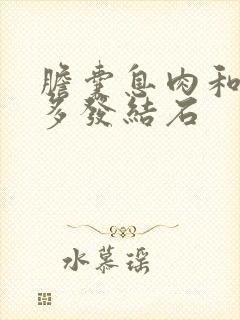 膽囊息肉和
多發結石
水慕瑶